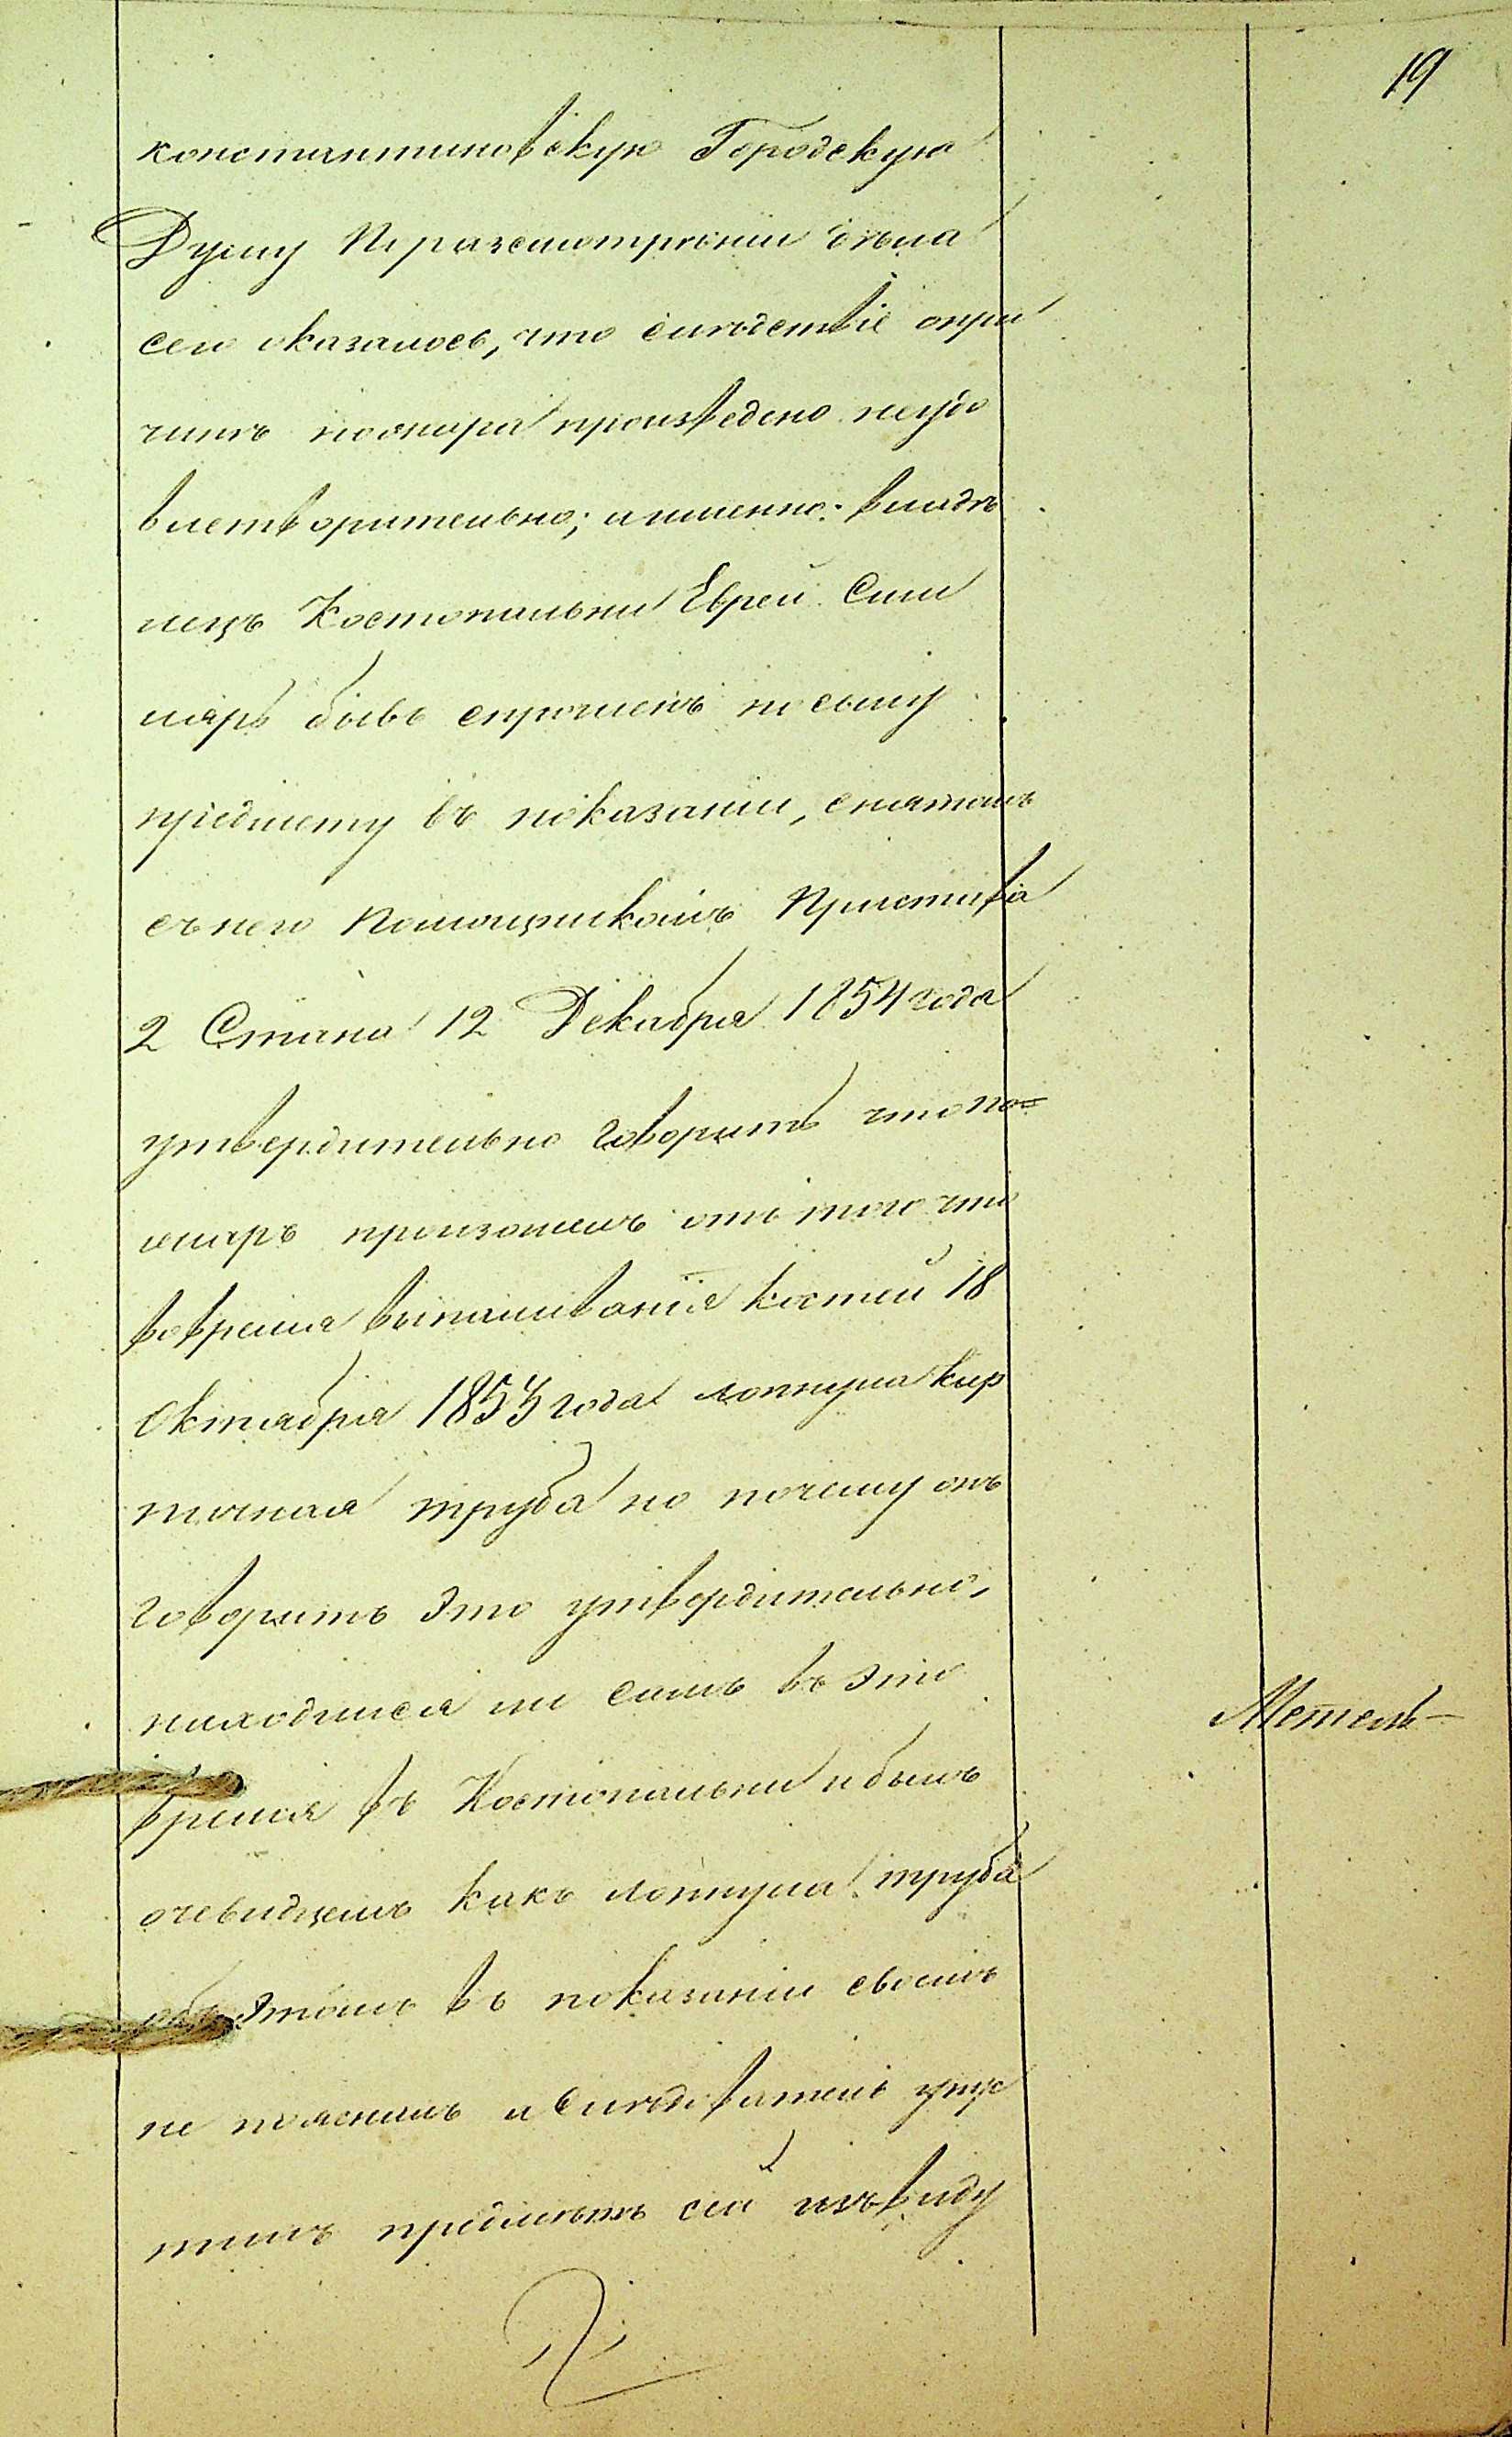 19
константиновскую Городскую
Думу По разсмотреніи дѣла
сего оказалось, что слѣдствіе опри
чинѣ пожара произведено неудо
влетворительно; а именно: владѣ
лецъ Костопальни Еврей
бывъ спрошенъ по сему
предмету въ показаніи, снятомъ
съ него Помощникомъ Пристава
2 Стана 12 Декабря 1854 года
утвердительно говоритъ что по=
жаръ произошелъ отъ того что
вовремя выпаливанія костей 18
Октября 1854 года лопнула кир
пичная труба но почему онъ
говоритъ это утвердительно,
находился ли самъ въ это
Метель
время въ Костопальни и былъ
очевидцемъ какъ лопнула труба
объ этомъ въ показаніи своемъ
не пояснилъ а Слѣдователь упус
тилъ предметъ сей изъ виду